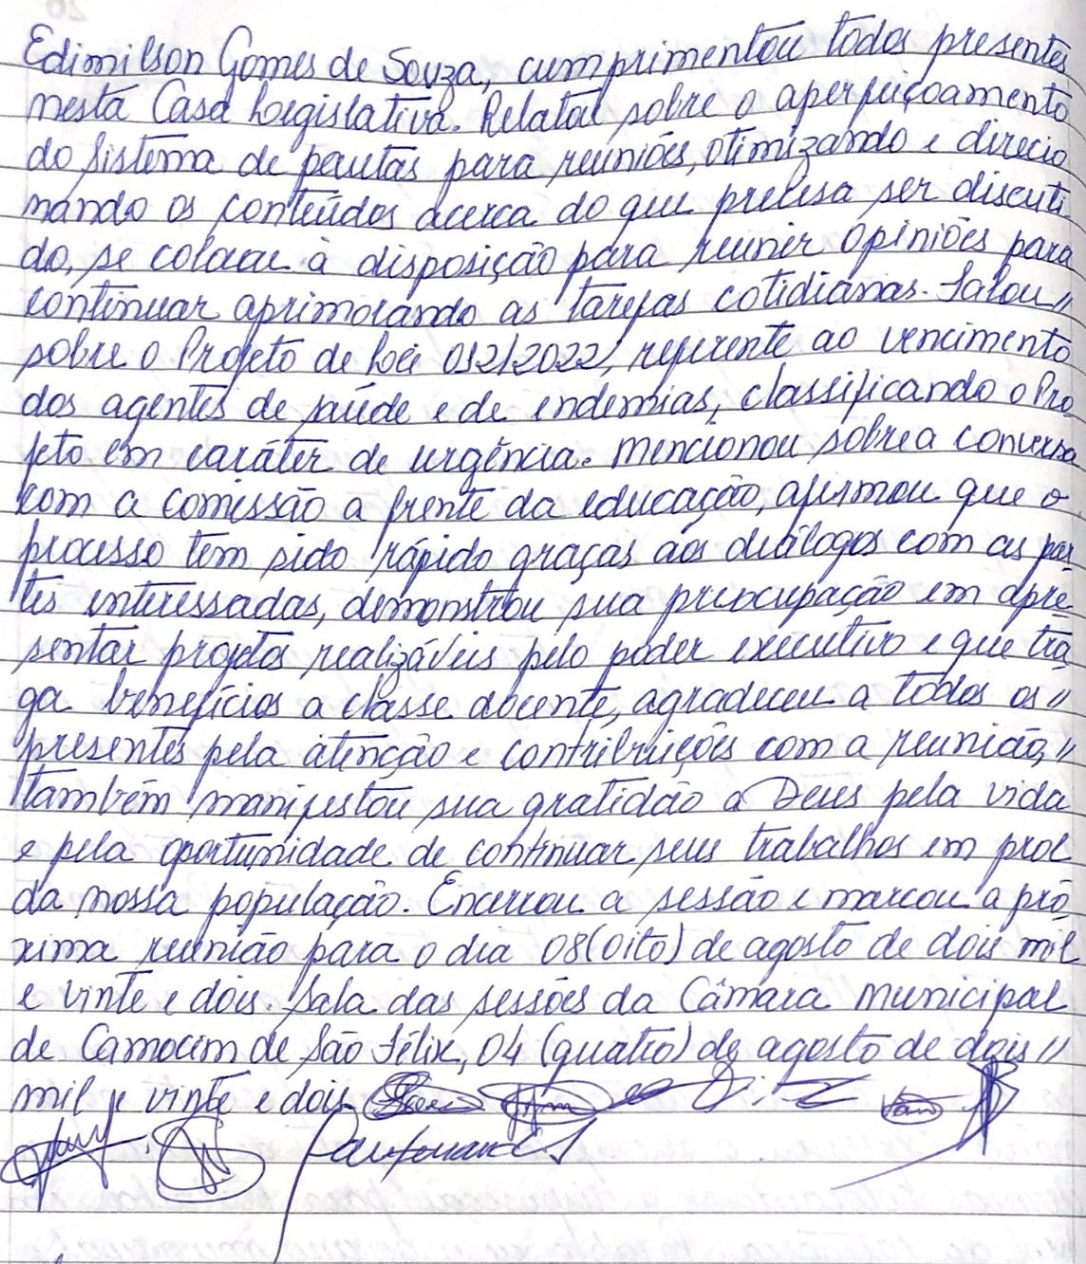 Edimilson Gomes de Souza, cumprimentou todos presentes
nesta Casa Legislativa. Relatou sobre o aperfeiçoamento
do sistema de pautas para reuniões, otimizando e direcio
nando os conteúdos acerca do que precisa ser discuti
do, se colocou à disposição para reunir opiniões para
continuar aprimorando as tarefas cotidianas. Falou //
sobre o Projeto de Lei 012/2022, referente ao vencimento
dos agentes de saúde e de endemias, classificando o Pro
jeto em caráter de urgência. mencionou sobre a conversa
com a comissão a frente da educação, afirmou que o
processo tem sido rápido graças aos diálogos com as par
tes interessadas, demonstrou sua preocupação em apre
sentar projetos realizáveis pelo poder executivo e que tra
ga benefícios a classe docente, agradeceu a todos os //
presentes pela atenção e contribuições com a reunião, //
também manifestou sua gratidão a Deus pela vida
e pela oportunidade de continuar seus trabalhos em prol
da nossa população. Encerrou a sessão e marcou a pró
xima reunião para o dia 08 (oito) de agosto de dois mil
e vinte e dois. Sala das sessões da Câmara municipal
de Camocim de São Félix, 04 (quatro) de agosto de dois //
mil e vinte e dois